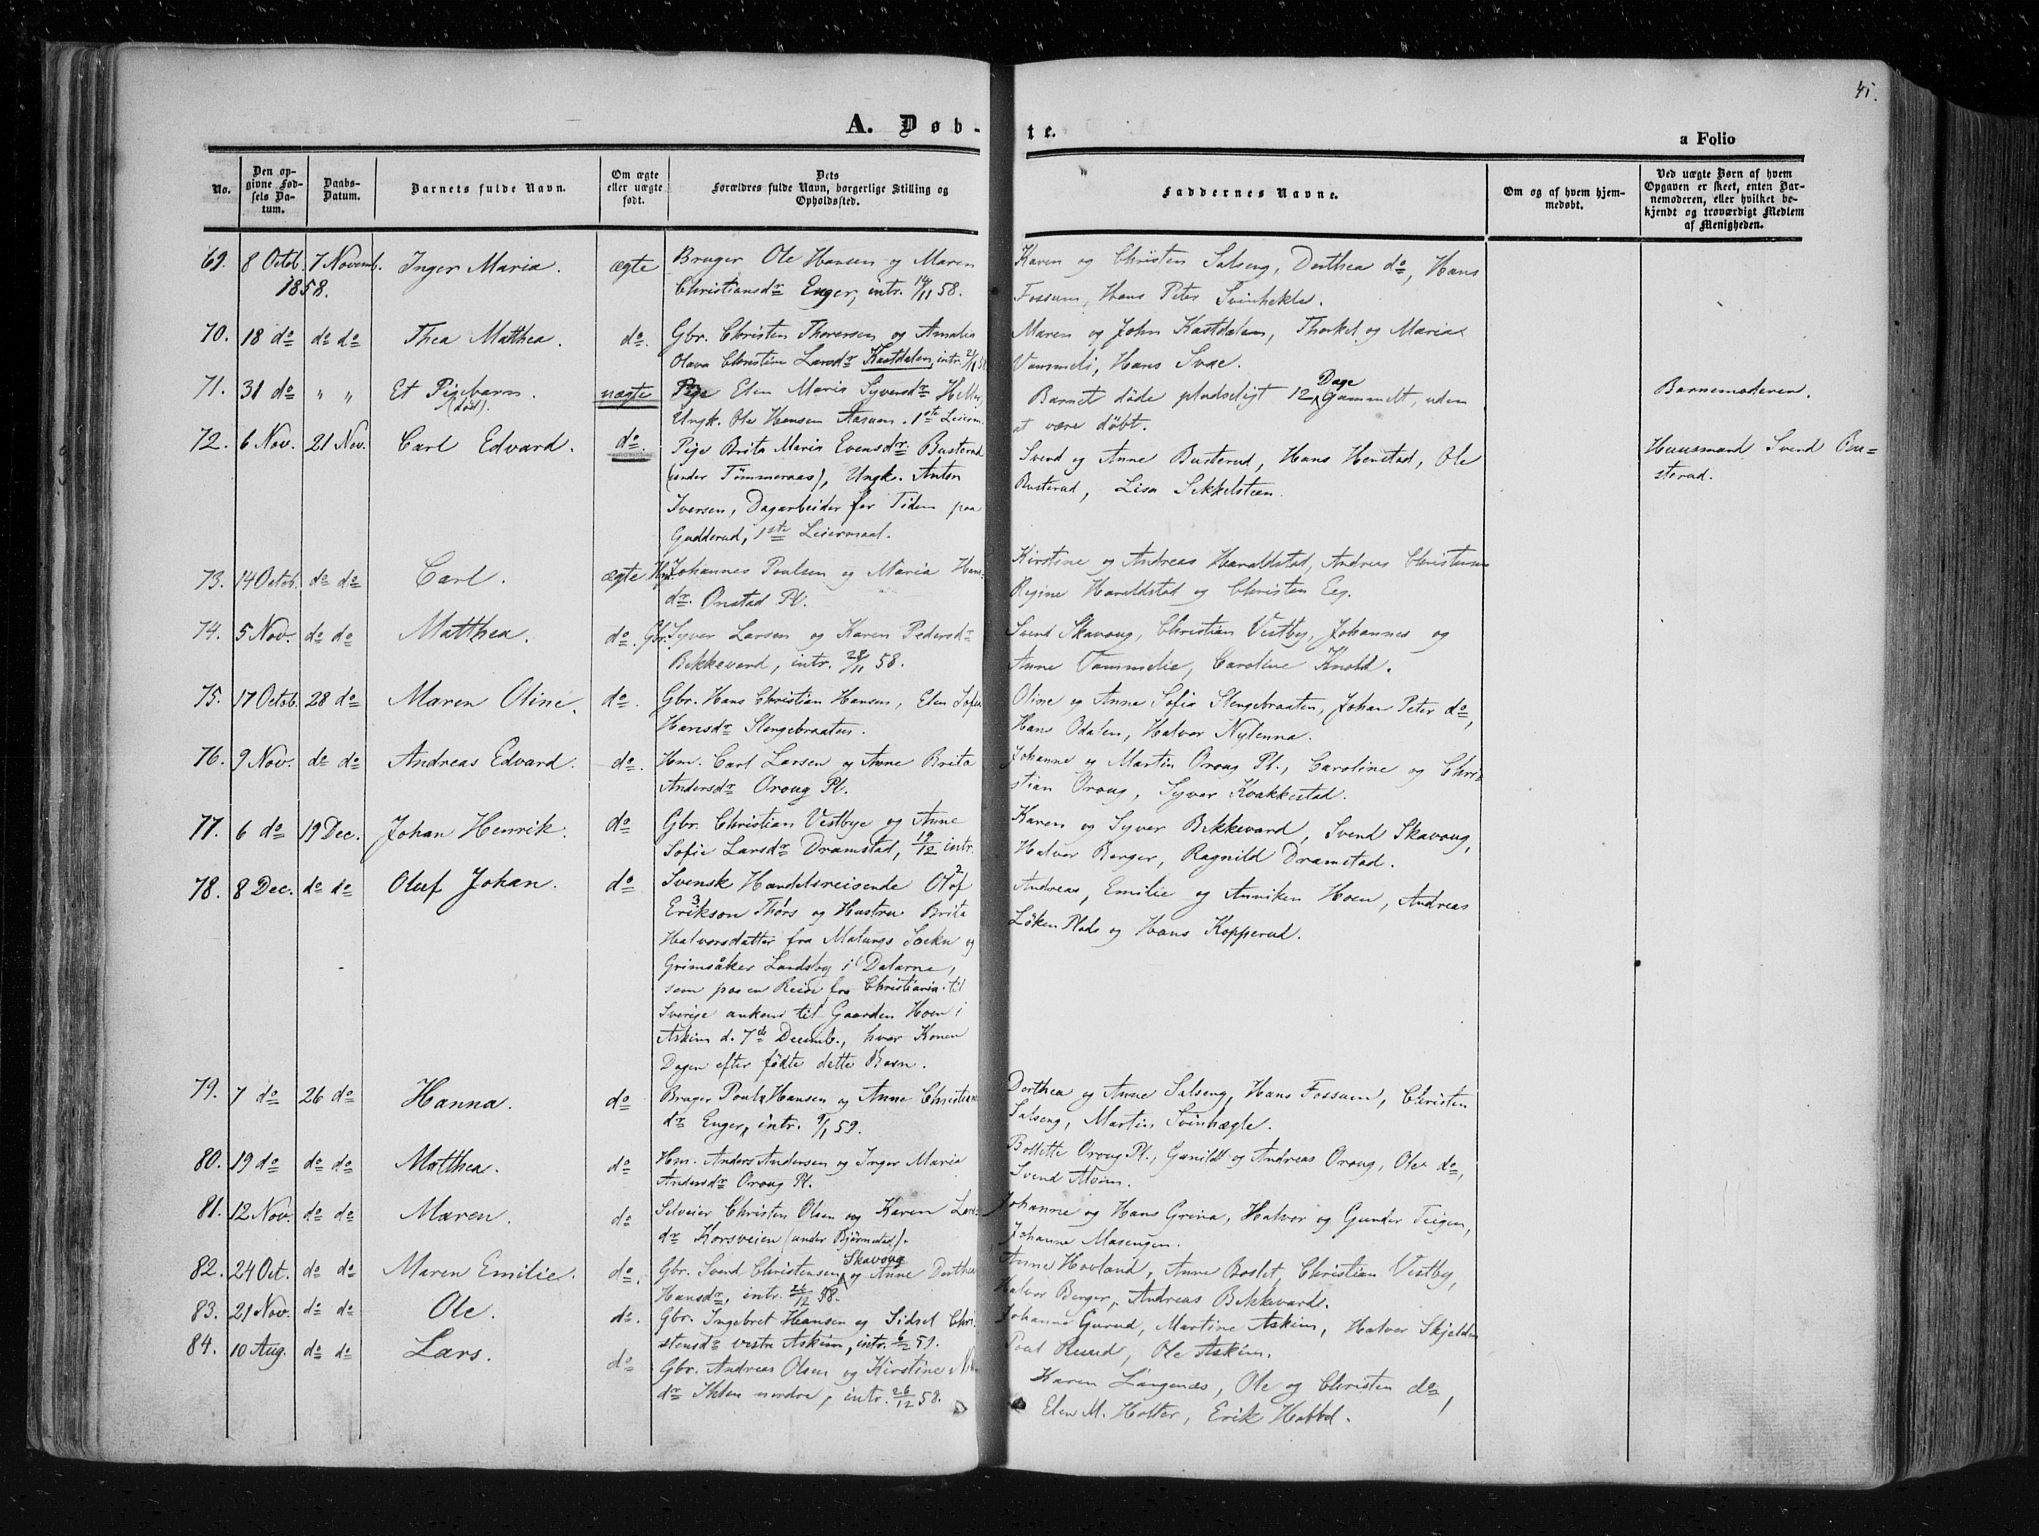 45.
A. Døb-
te.
a Folio
No.
Den op-
givne Fød-
sels Da-
tum.
Daabs-
Datum.
Barnets fulde Navn.
Om ægte
eller uægte
født.
Dets
Forældres fulde Navn, borgerlige Stilling og
Opholdssted.
Faddernes Navne.
Om og af hvem hjem-
medøbt.
Ved uægte Børn af hvem
Opgaven er skeet, enten Bar-
nemoderen, eller hvilket be-
kjendt og troværdigt Medlem
af Menigheden.
69. 8 Octob. 7 Novemb. Inger Maria. ægte Bruger Ole Hansen og Maren
1858. Christiansdr Enger, intr. 14/11 58.
Karen og Christen Salseng, Dorthea do, Hans
Fossum, Hans Peter Svinhekle.
70. 18 do do do Thea Matthea. do. Gbr. Christen Thoresen og Amalia
Olava Christine Larsdr Kastdalen, intr. 21/11 58
Maren og John Kastdalen, Thorkel og Maria
Vammeli, Hans Svae.
71. 31 do " " Et Pigebarn uægte Pige Elen Maria Syversdr Heller,
(død). Ungk. Ole Hansen Aasum. 1ste Leierm.
Dage
Barnet døde pludseligt 12 Gammelt, uden
at være døbt.
Barnemoderen.
72. 6 Nov. 21 Nov. Carl Edvard. do. Pige Brita Maria Evensdr. Busterud
(under Tømmeraas), Ungk. Anton
Iversen, Dagarbeider for Tiden paa
Gudderud, 1ste Leiermaal.
Svend og Anne Busterud, Hans Henstad, Ole
Busterud, Lisa Sikkelsteen.
Huusmand Svend Bu-
sterud.
73. 14 Octob. do do Carl. ægte Hm. Johannes Poulsen og Maria Hans-
dr. Onstad Pl.
Kirstine og Andreas Haraldstad, Andreas Christensen
Regine Haraldstad og Christen Eeg.
74. 5 Nov. do do Matthea. do. Gbr. Syver Larsen og Karen Pedersdr
Bekkevard, intr. 28/11 58.
Svend Skavoug, Christian Vestby, Johannes og
Anne Vammelie, Caroline Knold.
75. 17 Octob. 28 do Maren Oline. do. Gbr. Hans Christian Hansen, Elen Sofie
Hansdr Slengebraaten.
Oline og Anne Sofia Slengebraaten, Johan Peter do,
Hans Odalen, Halvor Nylenna.
76. 9 Nov. do do Andreas Edvard. do. Hm. Carl Larsen og Anne Brita
Andersdr Oroug Pl.
Johanne og Martin Oroug Pl., Caroline og Chri-
stian Oroug, Syver Kvakkestad.
77. 6 do 19 Dec. Johan Henrik. do Gbr. Christian Vestbye og Anne
Sofie Larsdr Dramstad, 19/12 intr.
Karen og Syver Bekkevard, Svend Skavoug,
Halvor Berger, Ragnild Dramstad.
78. 8 Dec. do do Oluf Johan. do Svensk Handelsreisende Olof
Erikson Thors og Hustru Brita
Halvorsdatter fra Malungs Sockn og
Grimsåker Landsby i Dalarne,
som paa en Reise fra Christiania til
Sverige ankom til Gaarden Hoen i
Askim d. 7de Decemb., hvor Konen
Dagen efter fødte dette Barn.
Andreas, Emilie og Anniken Hoen, Andreas
Løken Plads og Hans Kopperud.
79. 7 do 26 do Hanna. do Bruger Poul Hansen og Anne Christians
dr Enger, intr. 9/1 59.
Dorthea og Anne Salseng, Hans Fossum, Christen
Salseng, Martin Svinhægle.
80. 19 do do do Matthea. do Hm. Anders Andersen og Inger Maria
Andersdr Oroug Pl.
Bollette Oroug Pl., Gunild og Andreas Oroug, Ole do,
Svend Moen.
81. 12 Nov. do do Maren. do Selveier Christen Olsen og Karen Lars-
dr Korsveien (under Bjørmstad).
Johanne og Hans Grina, Halvor og Gunder Teigen,
Johanne Masengen.
82. 24 Oct. do do Maren Emilie. do. Gbr. Svend Christensen Skavoug og Anne Dorthea
Hansdr, intr. 26/12 58.
Anne Hovland, Anne Boslet, Christian Vestby,
Halvor Berger, Andreas Bekkevard.
83. 21 Nov. do do Ole. do. Gbr. Ingebret Hansen og Sidsel Chri-
stensdr vestre Askim, intr. 6/2 59.
Johanne Gurud, Martine Askim, Halvor Skjolden
Poul Ruud, Ole Askim.
84. 10 Aug. do do Lars. do Gbr. Andreas Olsen og Kirstine
dr Ihlen nordre, intr. 26/12 58.
Karen Langenæs, Ole og Christen do,
Elen M. Holter, Erik Habbøl.